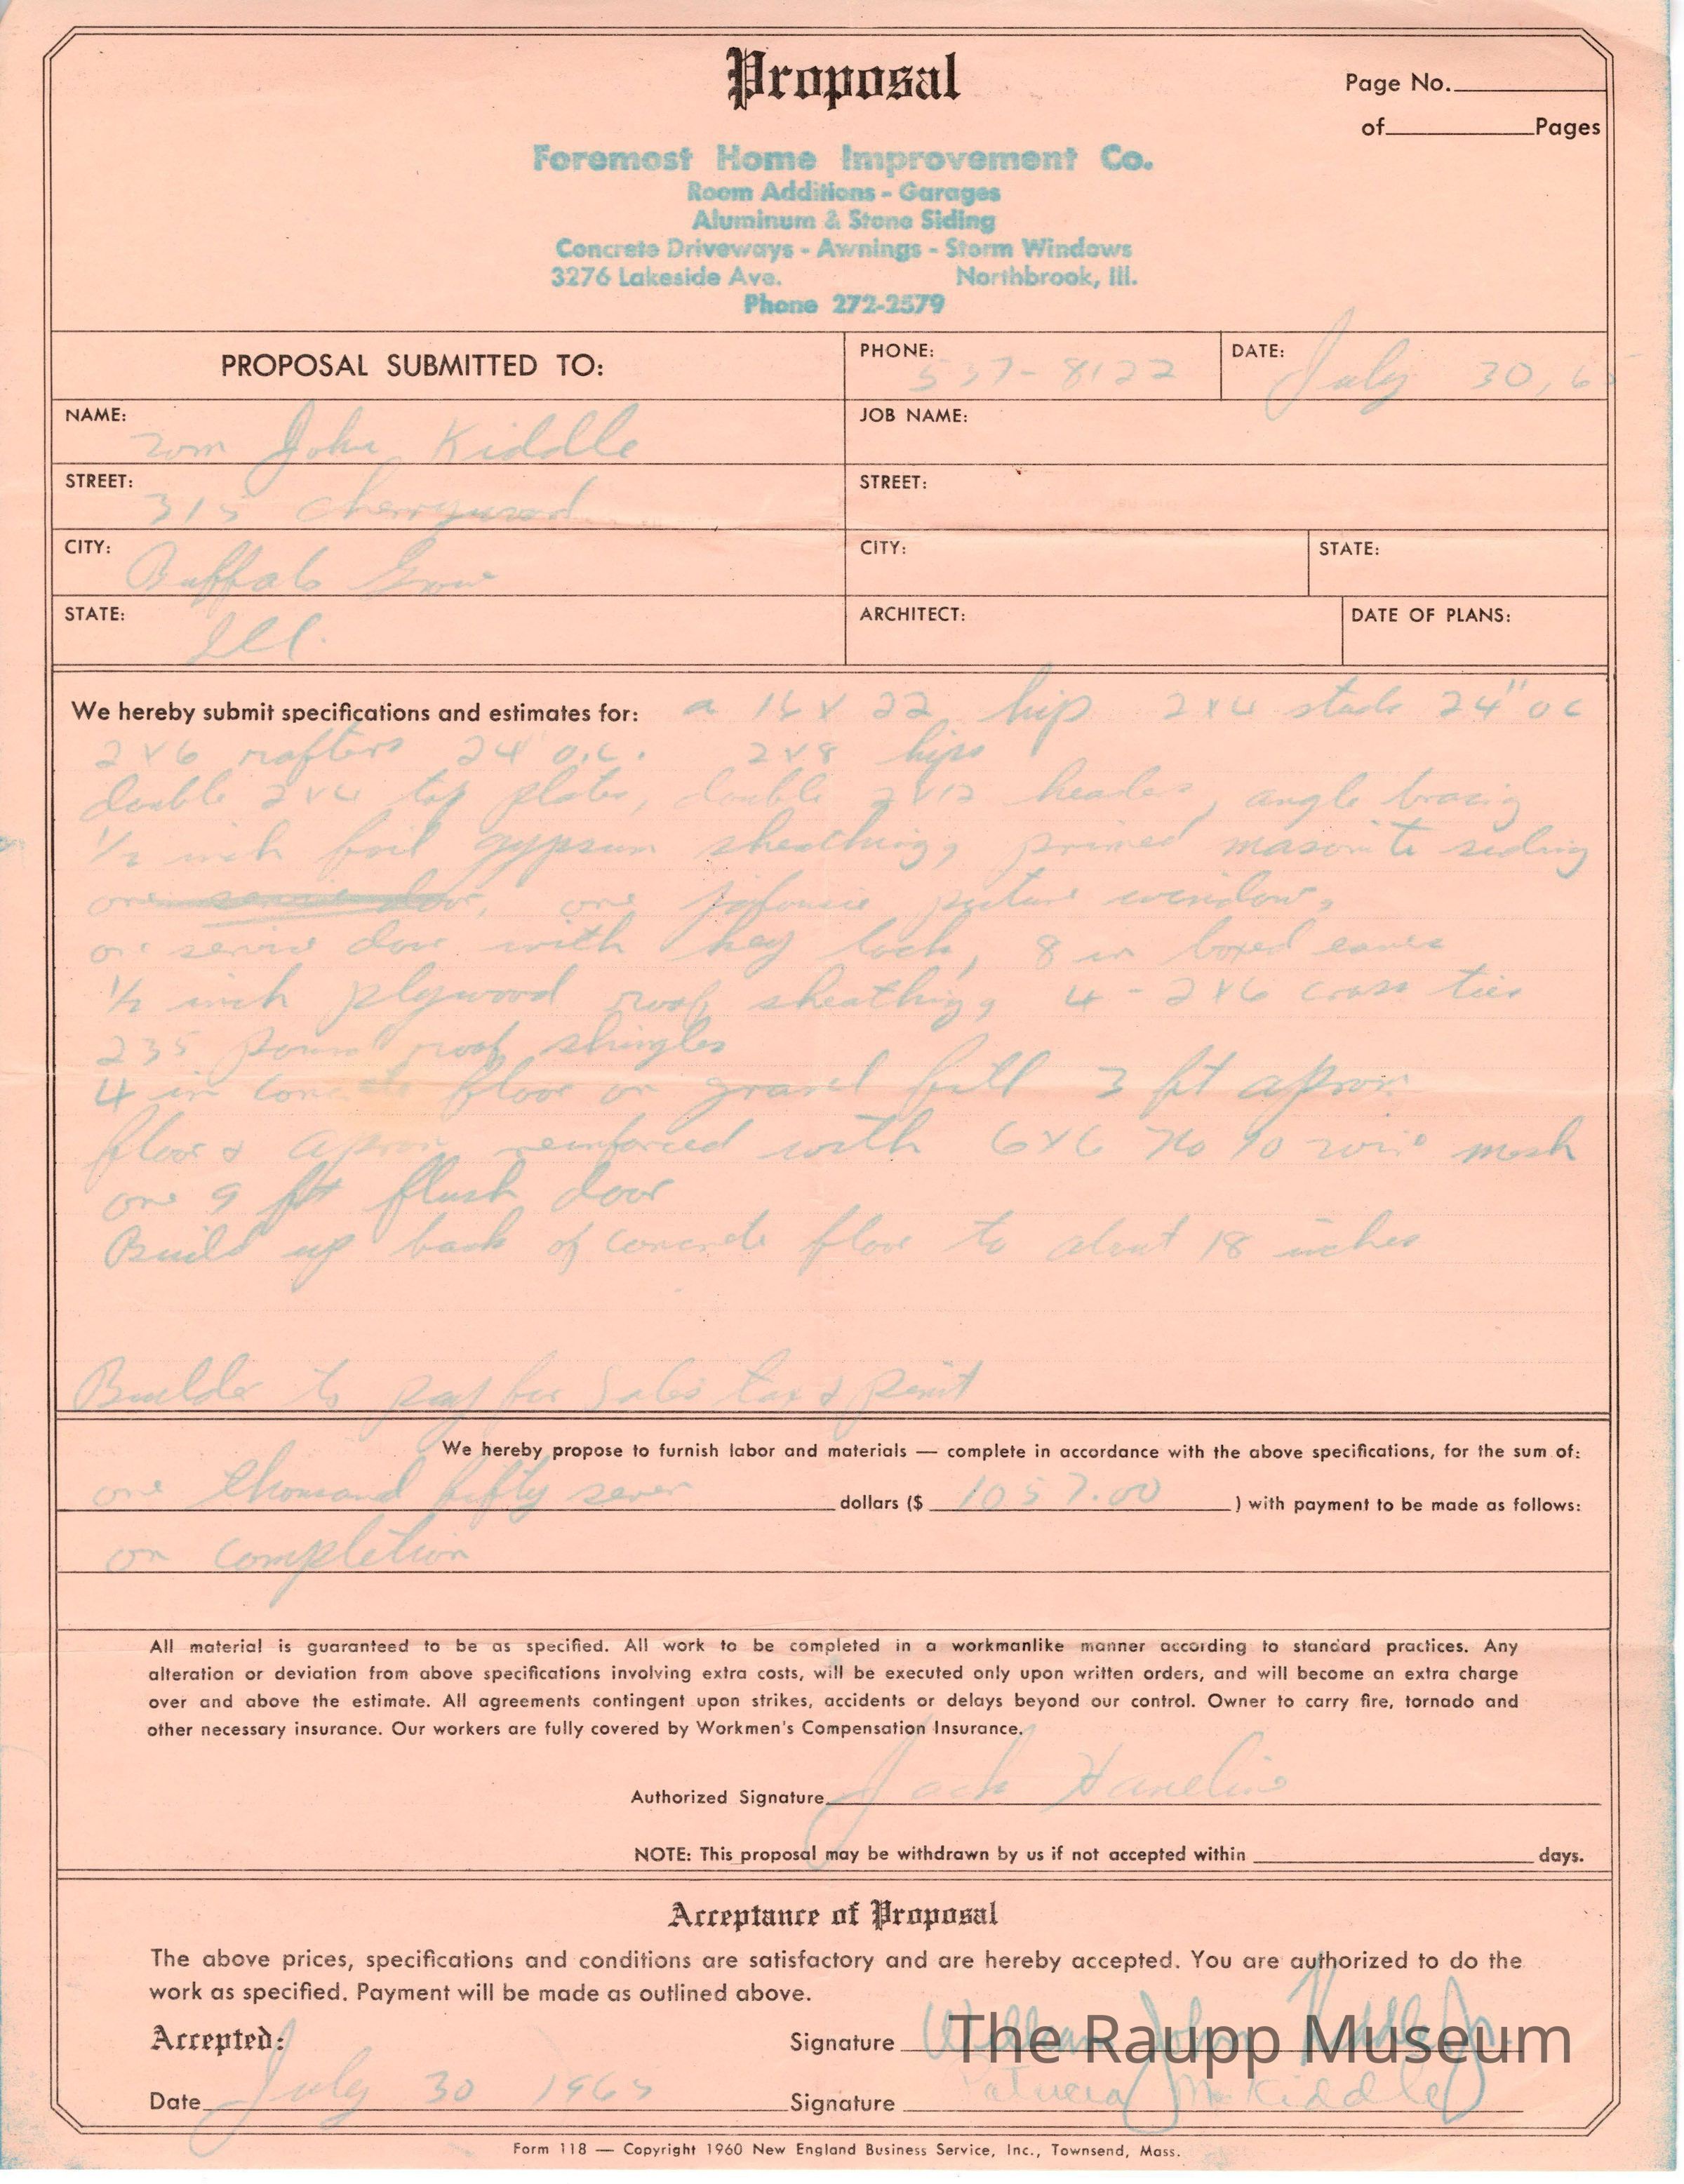 Proposal
Page No.
of Pages
Foremost Home Improvement Co.
Room Additions - Garages
Aluminum & Stone Siding
Concrete Driveways - Awnings - Storm Windows
3276 Lakeside Ave. Northbrook, Ill.
Phone 272-2579
PROPOSAL SUBMITTED TO:
PHONE: 537-8122
DATE: July 30, 65
NAME: John Kiddle
JOB NAME:
STREET: 315 Cherrywood
STREET:
CITY: Buffalo Grove
CITY:
STATE:
STATE: Ill.
ARCHITECT:
DATE OF PLANS:
We hereby submit specifications and estimates for: a 16 x 22 hip 2x4 studs 24" oc
2x6 rafters 24" o.c. 2x8 hips
double 2x4 top plates, double 2x12 header, angle bracing
1/2 inch foil gypsum sheathing, primed masonite siding
one service door, one jalousie picture window,
one service door with key lock, 8 in boxed eaves
1/2 inch plywood roof sheathing, 4 - 2x6 cross ties
235 pound roof shingles
4 in concrete floor on gravel fill 3 ft apron
floor & apron reinforced with 6x6 No 10 wire mesh
one 9 ft flush door
Build up back of concrete floor to about 18 inches
Builder to pay for Sales tax & permit
We hereby propose to furnish labor and materials — complete in accordance with the above specifications, for the sum of:
one thousand fifty seven dollars ($ 1057.00 ) with payment to be made as follows:
on completion
All material is guaranteed to be as specified. All work to be completed in a workmanlike manner according to standard practices. Any
alteration or deviation from above specifications involving extra costs, will be executed only upon written orders, and will become an extra charge
over and above the estimate. All agreements contingent upon strikes, accidents or delays beyond our control. Owner to carry fire, tornado and
other necessary insurance. Our workers are fully covered by Workmen's Compensation Insurance.
Authorized Signature Jack
NOTE: This proposal may be withdrawn by us if not accepted within days.
Acceptance of Proposal
The above prices, specifications and conditions are satisfactory and are hereby accepted. You are authorized to do the
work as specified. Payment will be made as outlined above.
Accepted:
Signature William John Kiddle Jr.
The Raupp Museum
Date July 30 1965
Signature Patricia M. Kiddle
Form 118 — Copyright 1960 New England Business Service, Inc., Townsend, Mass.